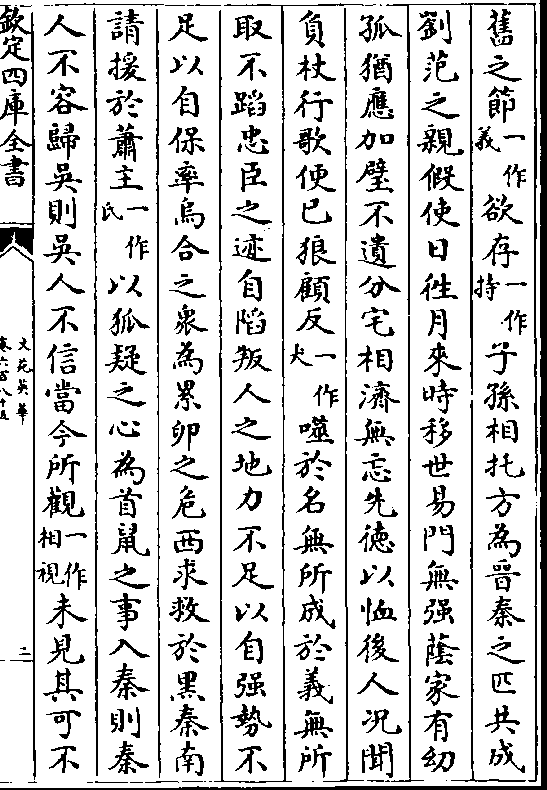 舊之節一作義欲存一作持子孫相托方為晉秦之匹共成
劉范之親假使日徃月來時移世易門無强蔭家有幼
孤猶應加璧不遺分宅相濟無忘先徳以恤後人况聞
負杖行歌便已狼顧反一作犬噬於名無所成於義無所
取不蹈忠臣之迹自陷叛人之地力不足以自强勢不
足以自保率烏合之衆為累卵之危西求救於黒秦南
請援於蕭主一作氏以狐疑之心為首鼠之事入秦則秦
人不容歸吳則吳人不信當今所觀一作相視未見其可不
欽定四庫全書
文苑英華
卷六百八十五
二